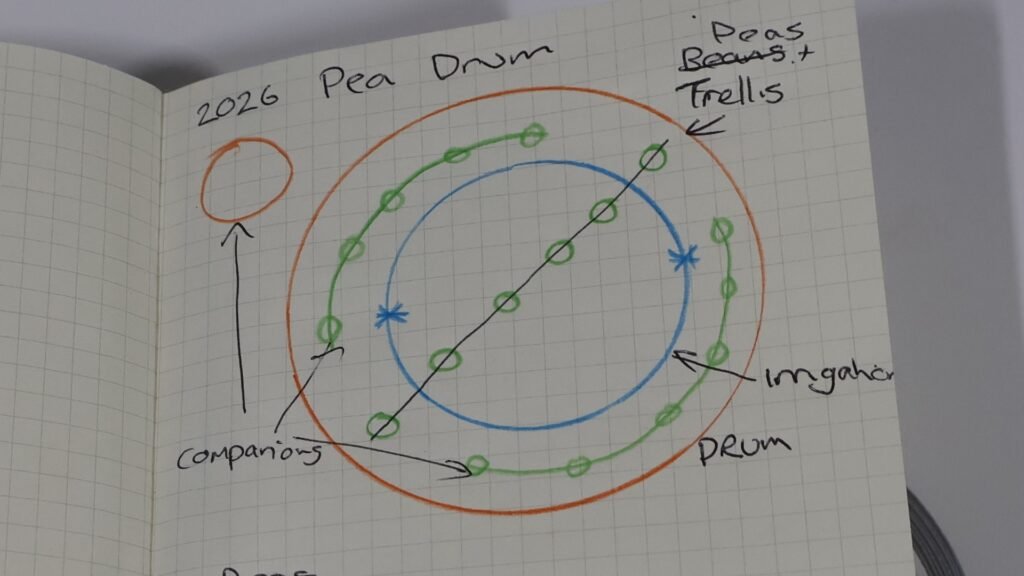 2026 Pea Drum
Peas
Beans +
Trellis
Irrigation
Drum
companions